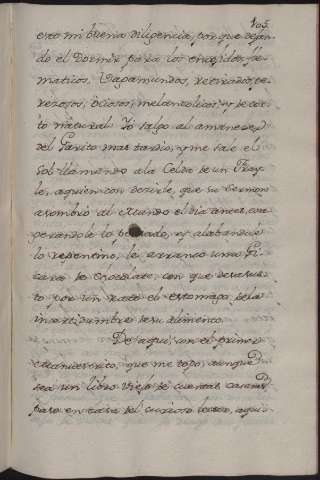 105
esto mi buena diligencia, porque dejan-
do el Dormir para los encojidos, fle-
maticos, Vagamundos, retirados, pe-
rezosos, ociosos, melancolicos, y de cor-
to natural. Yo salgo al amanecer
del Garito mas tardio, y me sale el
Sol llamando a la Celda de un Fray-
le, aquien con decirle, que su Sermon
asombrò al Mundo el dia antes,
lo y alabandole
lo repentino, le arranco una Gi-
cara de Chocolate, con que desasus-
to por un rato el estomago de la
incertidumbre de su alimento.
De aqui, con el primer
manuscrito, que me topo, aunque
sea un libro viejo de cuentas caseras
paso en casa del curioso lector, aqui-